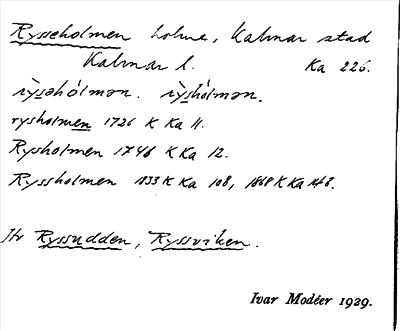 Rysseholmen holme, Kalmar stad
Kalmar l. Ka 226.
rỳsəhól̀mən. rỳshól̀mən.
rysholmen 1726 K Ka 11.
Rysholmen 1746 K Ka 12.
Ryssholmen 1833 K Ka 108, 1868 K Ka 148.
Jfr Ryssudden, Ryssviken.
Ivar Modéer 1929.